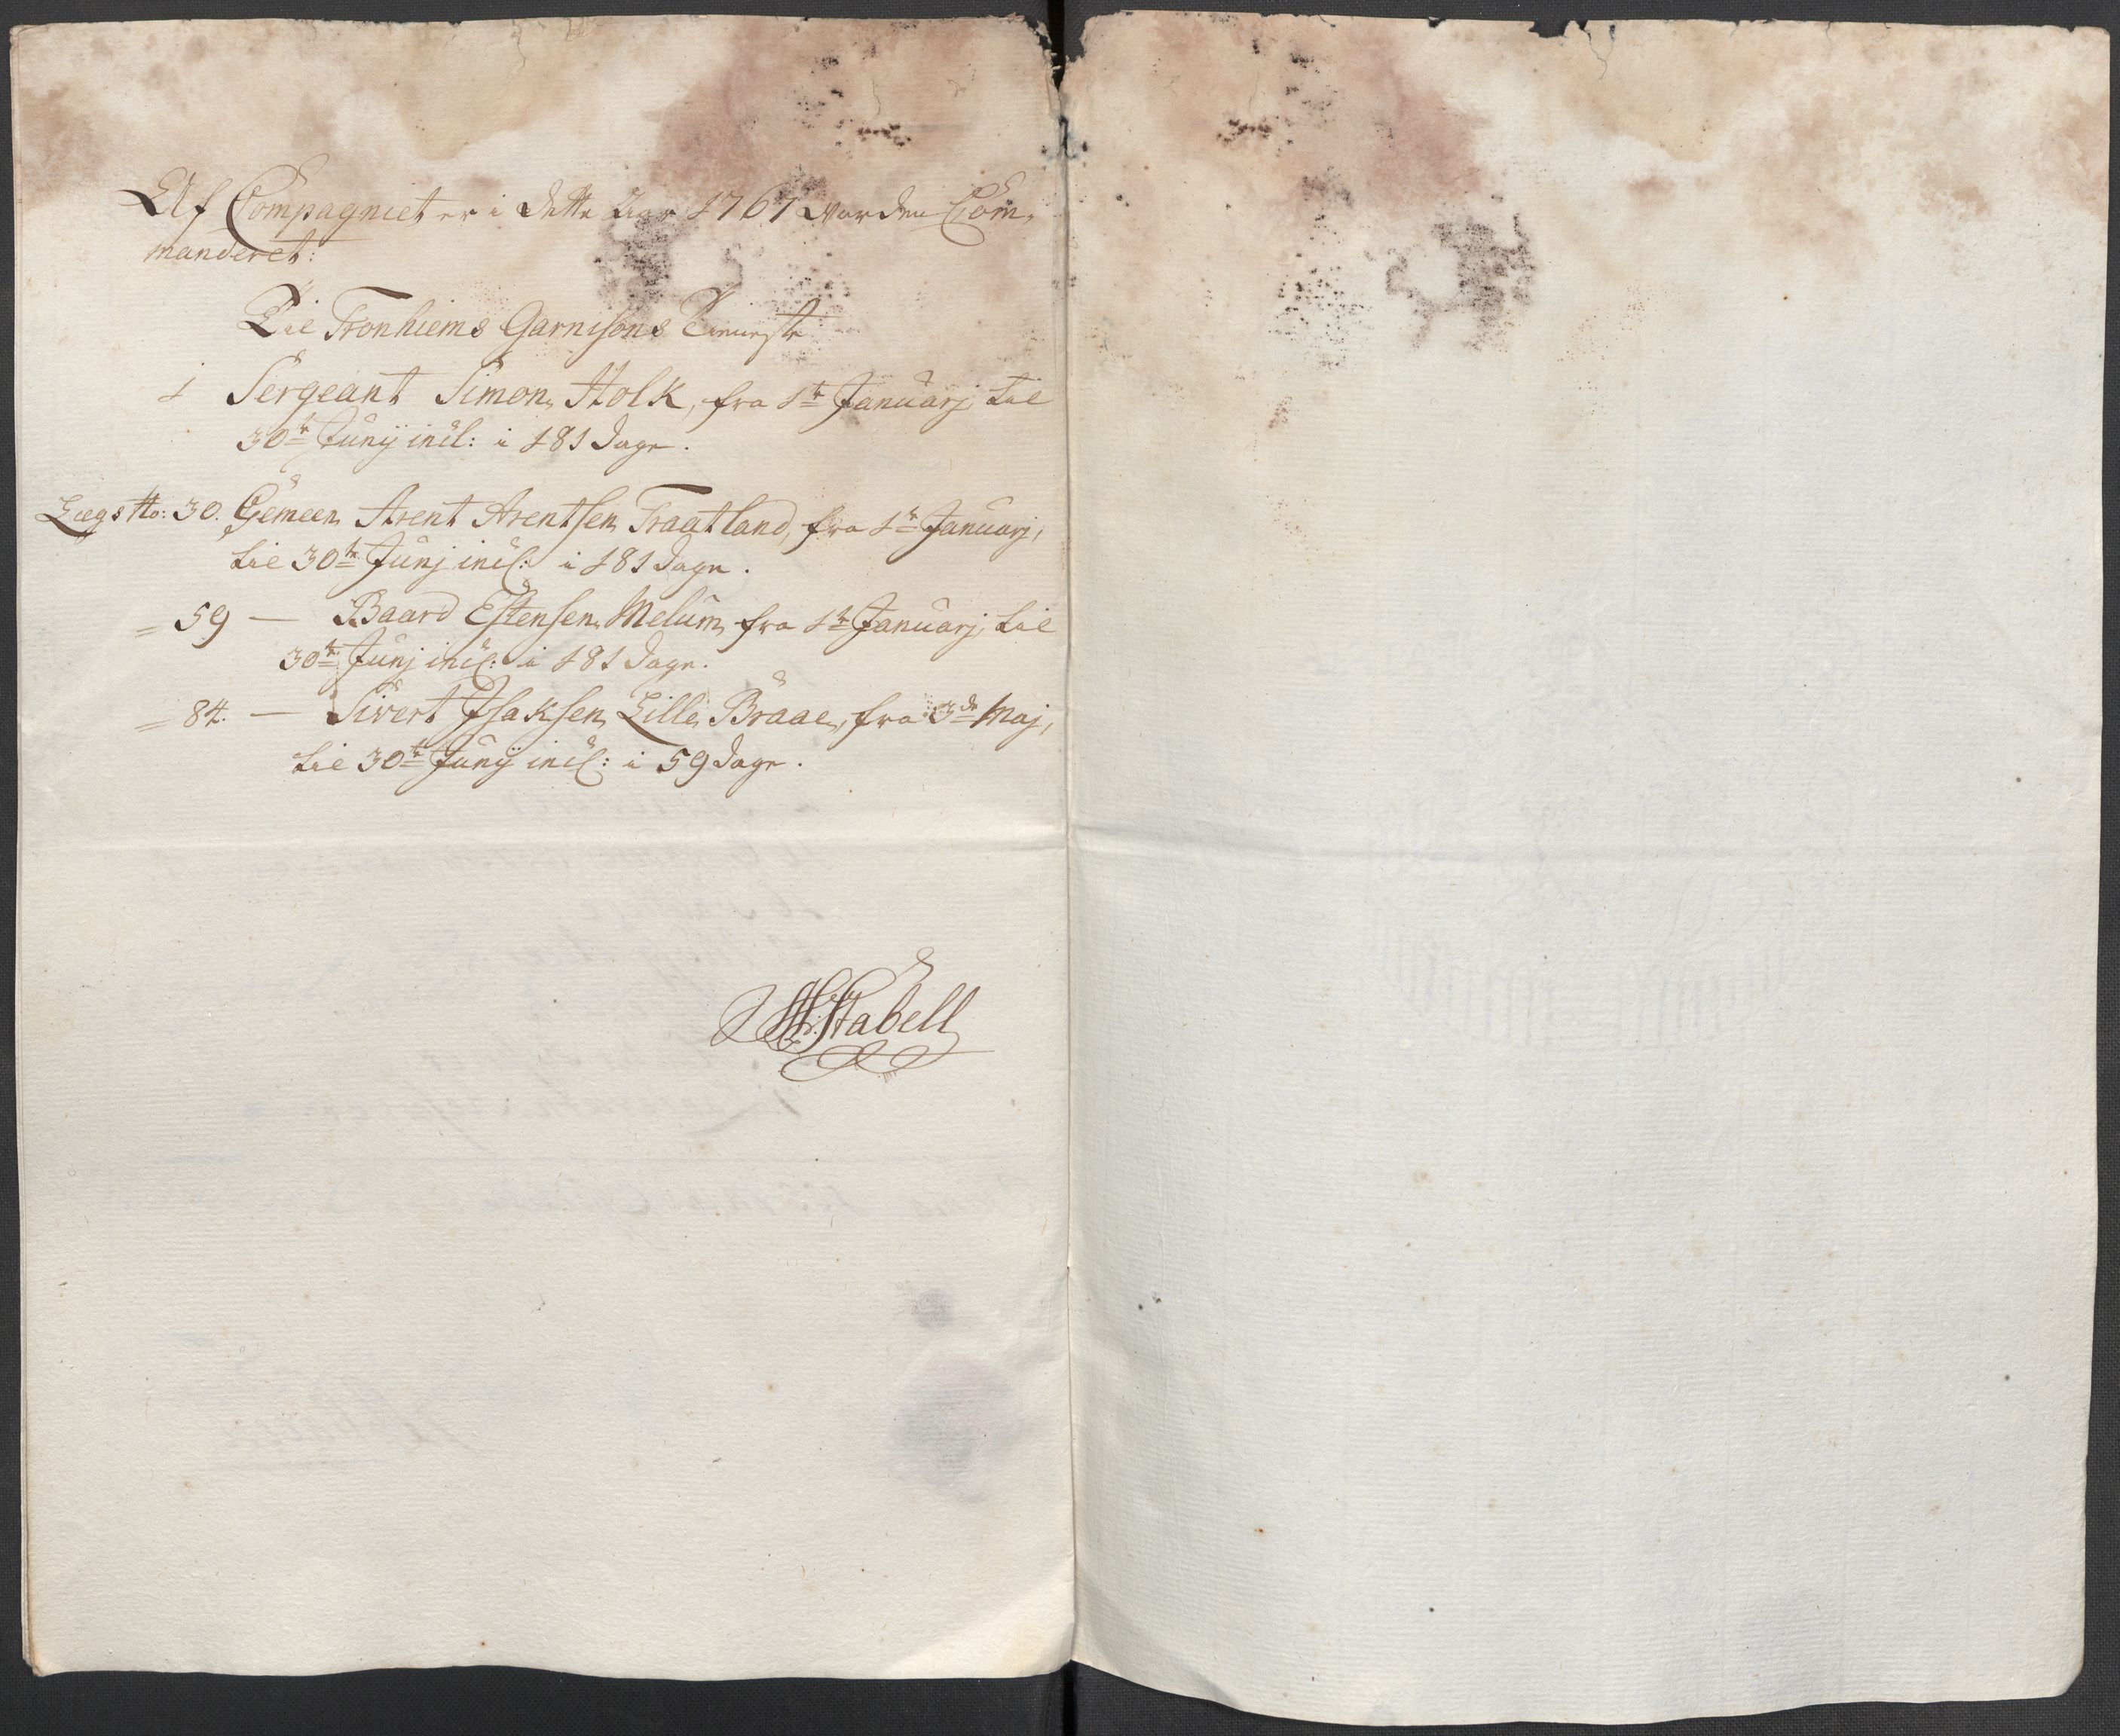 Af Compagniet er i dette Aar 1767 vorden Com-
manderet:
Til Tronhiems Garnisons Tieneste
1 Sergeant Simon Holk, fra 1te Januarj, til
30te Junij incl: i 181 dage.
Lægs No: 30. Gemeen Arent Arentsen Traatland, fra 1te Januarj,
til 30te Junj incl: i 181 dage.
= 59 — Baard Estensen Melum, fra 1te Januarj, til
30te Junj incl: i 181 dage.
= 84. — Sivert Jsaksen Lille Braae, fra 3de Maj,
til 30te Junij incl: i 59 dage.
Stabell